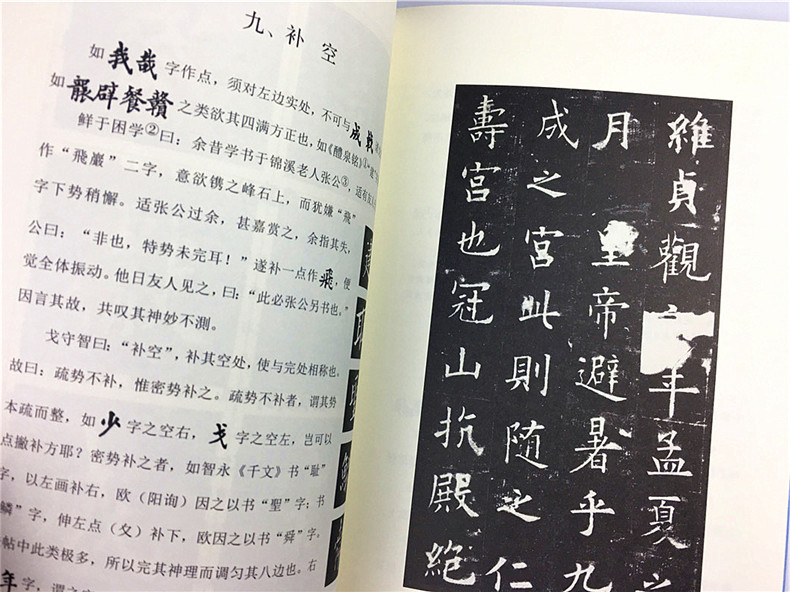 九、补 空
如我哉字作点，须对左边实处，不可与成
如辟餐赣之类欲其四满方正也，如《醴泉铭》
鲜于困学②曰：余昔学书于锦溪老人张公③，适有
作“飛巖”二字，意欲镌之峰石上，而犹嫌“飛”
字下势稍懈。适张公过余，甚嘉赏之，余指其失，
公曰：“非也，特势未完耳！”遂补一点作飛，便
觉全体振动。他日友人见之，曰：“此必张公另书也。”
因言其故，共叹其神妙不测。
戈守智曰：“补空”，补其空处，使与完处相称也。
故曰：疏势不补，惟密势补之。疏势不补者，谓其势
本疏而整，如少字之空右，戈字之空左，岂可以
点撇补方耶？密势补之者，如智永《千文》书“耻”
字，以左画补右，欧（阳询）因之以书“聖”字；书
鳞”字，伸左点（攵）补下，欧因之以书“舜”字，
帖中此类极多，所以完其神理而调匀其八边也。右
年字，谓之
維貞觀 年孟夏之
月 皇帝避暑乎九
成之宮此則随之仁
壽宮也冠山抗殿絕